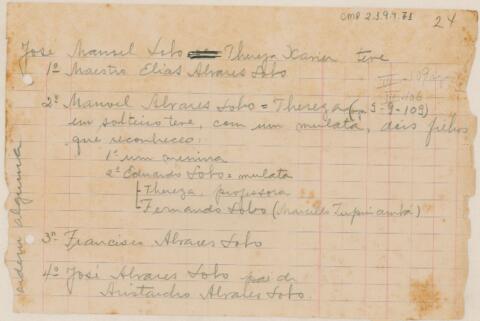 CMP 2.3.9.9.71
24
José Manoel Lobo Thereza Xavier teve
1º Maestro Elias Alvares Lobo
2º Manoel Alvares Lobo = Thereza (5-9-109)
em solteiro teve, com um mulata, dois filhos
que reconheceo:
1º um menina
2º Eduardo Lobo = mulata
Thereza, professora
Fernando Lobo (Marcello Tupinambá)
3º Francisco Alvares Lobo
4º José Alvares Lobo pae de
Aristardio Alvares Lobo.